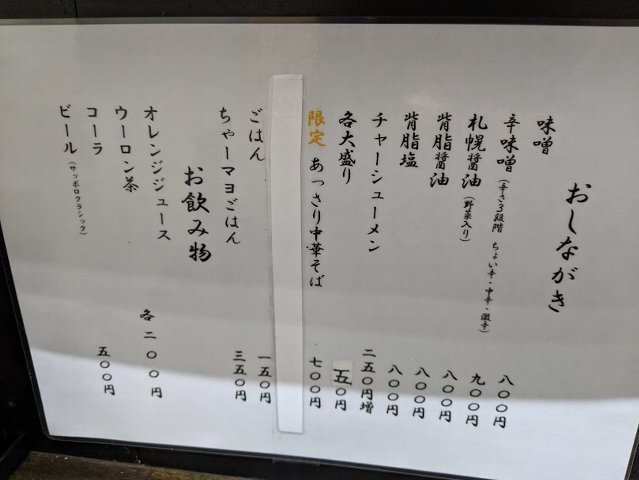 おしながき
味噌 八〇〇円
辛味噌(辛さ3段階 ちょい辛・中辛・激辛) 九〇〇円
札幌醤油(野菜入り) 八〇〇円
背脂醤油 八〇〇円
背脂塩 八〇〇円
チャーシューメン 二五〇円増
各大盛り 五〇円
限定 あっさり中華そば 七〇〇円
ごはん 一五〇円
ちゃーマヨごはん 三五〇円
お飲み物
オレンジジュース
ウーロン茶 各二〇〇円
コーラ
ビール(サッポロクラシック) 五〇〇円